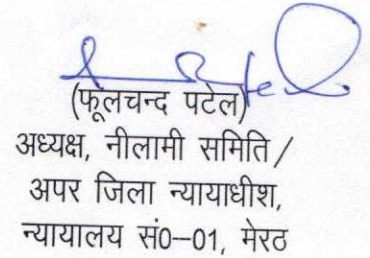 (फूलचन्द पटेल)
अध्यक्ष, नीलामी समिति /
अपर जिला न्यायाधीश,
न्यायालय सं0–01, मेरठ